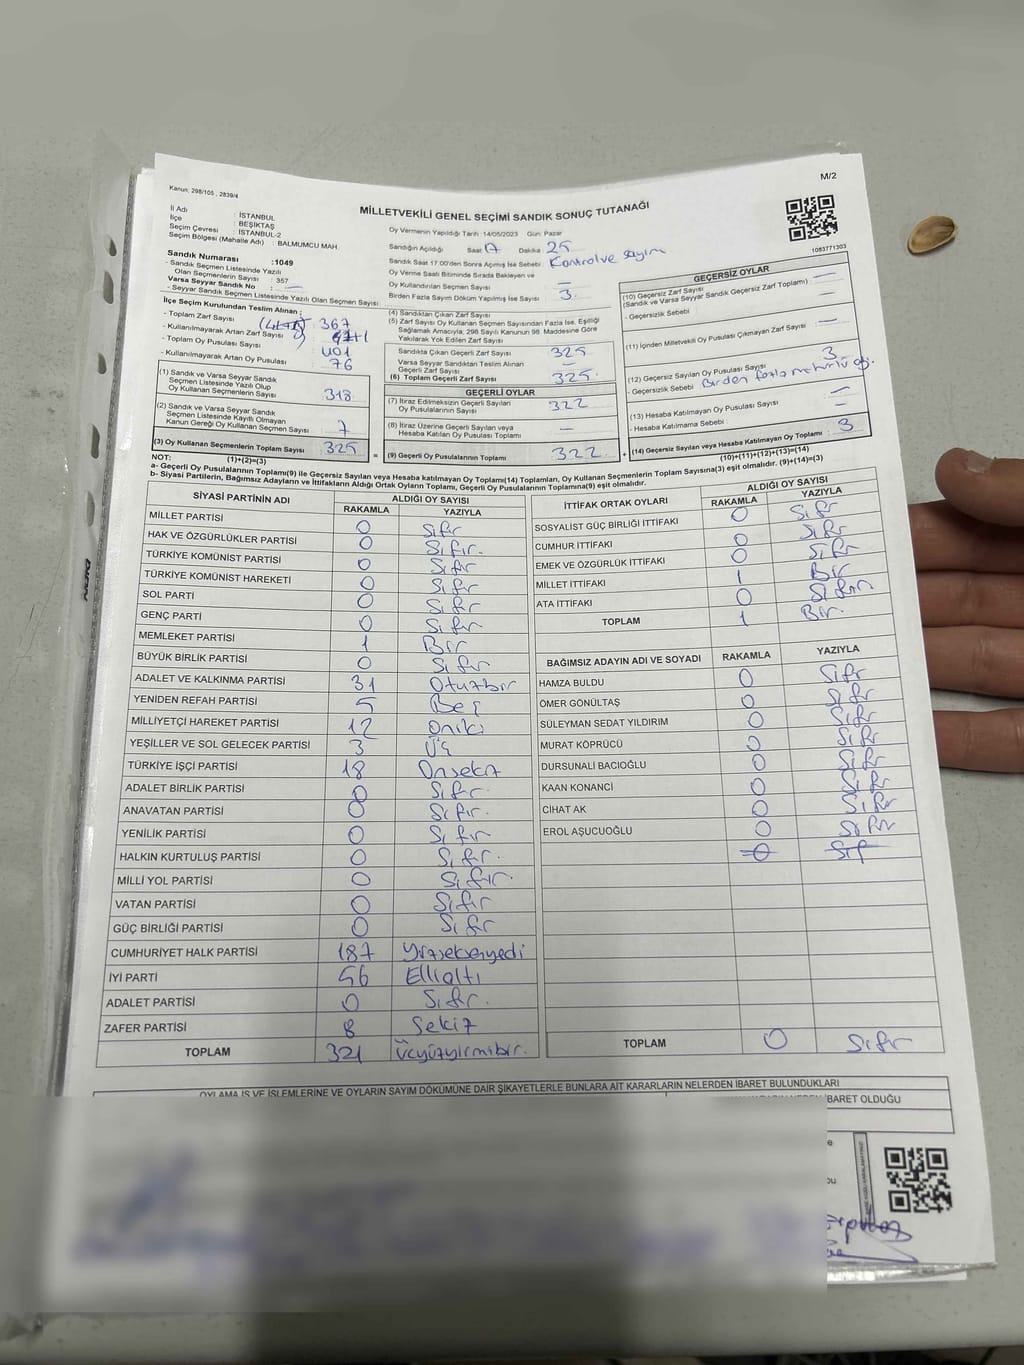 M/2
Kanun: 298/105 , 2839/4
MİLLETVEKİLİ GENEL SEÇİMİ SANDIK SONUÇ TUTANAĞI
1083771303
İl Adı : İSTANBUL
İlçe : BEŞİKTAŞ
Seçim Çevresi : İSTANBUL-2
Seçim Bölgesi (Mahalle Adı) : BALMUMCU MAH.
Sandık Numarası :1049
- Sandık Seçmen Listesinde Yazılı
Olan Seçmenlerin Sayısı : 357
Varsa Seyyar Sandık No : —
- Seyyar Sandık Seçmen Listesinde Yazılı Olan Seçmen Sayısı
İlçe Seçim Kurulundan Teslim Alınan ;
- Toplam Zarf Sayısı : 367
- Kullanılmayarak Artan Zarf Sayısı
- Toplam Oy Pusulası Sayısı : 401
- Kullanılmayarak Artan Oy Pusulası : 76
(1) Sandık ve Varsa Seyyar Sandık
Seçmen Listesinde Yazılı Olup
Oy Kullanan Seçmenlerin Sayısı 318
(2) Sandık ve Varsa Seyyar Sandık
Seçmen Listesinde Kayıtlı Olmayan
Kanun Gereği Oy Kullanan Seçmen Sayısı 7
(3) Oy Kullanan Seçmenlerin Toplam Sayısı 325
(1)+(2)=(3)
Oy Vermenin Yapıldığı Tarih :14/05/2023 Gün: Pazar
Sandığın Açıldığı Saat 17 Dakika 25
Sandık Saat 17:00'den Sonra Açılmış İse Sebebi : Kontrol ve sayım
Oy Verme Saati Bitiminde Sırada Bekleyen ve
Oy Kullandırılan Seçmen Sayısı : —
Birden Fazla Sayım Döküm Yapılmış İse Sayısı : 3
(4) Sandıktan Çıkan Zarf Sayısı :
(5) Zarf Sayısı Oy Kullanan Seçmen Sayısından Fazla İse, Eşitliği
Sağlamak Amacıyla, 298 Sayılı Kanunun 98. Maddesine Göre
Yakılarak Yok Edilen Zarf Sayısı :
Sandıkta Çıkan Geçerli Zarf Sayısı 325
Varsa Seyyar Sandıktan Teslim Alınan
Geçerli Zarf Sayısı —
(6) Toplam Geçerli Zarf Sayısı 325
GEÇERLİ OYLAR
(7) İtiraz Edilmeksizin Geçerli Sayılan
Oy Pusulalarının Sayısı 322
(8) İtiraz Üzerine Geçerli Sayılan veya
Hesaba Katılan Oy Pusulası Toplamı —
(9) Geçerli Oy Pusulaları Toplamı 322
GEÇERSİZ OYLAR
(10) Geçersiz Zarf Sayısı —
(Sandık ve Varsa Seyyar Sandık Geçersiz Zarf Toplamı) —
- Geçersizlik Sebebi
(11) İçinden Milletvekili Oy Pusulası Çıkmayan Zarf Sayısı —
(12) Geçersiz Sayılan Oy Pusulası Sayısı : 3
- Geçersizlik Sebebi : Birden fazla
(13) Hesaba Katılmayan Oy Pusulası Sayısı : —
- Hesaba Katılmama Sebebi : —
(14) Geçersiz Sayılan veya Hesaba Katılmayan Oy Toplamı 3
(10)+(11)+(12)+(13)=(14)
NOT:
a- Geçerli Oy Pusulalarının Toplamı(9) ile Geçersiz Sayılan veya Hesaba katılmayan Oy Toplamı(14) Toplamları, Oy Kullanan Seçmenlerin Toplam Sayısına(3) eşit olmalıdır. (9)+(14)=(3)
b- Siyasi Partilerin, Bağımsız Adayların ve İttifakların Aldığı Ortak Oyların Toplamı, Geçerli Oy Pusulalarının Toplamına(9) eşit olmalıdır.
SİYASİ PARTİNİN ADI ALDIĞI OY SAYISI
RAKAMLA YAZIYLA
MİLLET PARTİSİ 0 Sıfır
HAK VE ÖZGÜRLÜKLER PARTİSİ 0 Sıfır.
TÜRKİYE KOMÜNİST PARTİSİ 0 Sıfır
TÜRKİYE KOMÜNİST HAREKETİ 0 Sıfır
SOL PARTİ 0 Sıfır
GENÇ PARTİ 0 Sıfır
MEMLEKET PARTİSİ 1 Bir
BÜYÜK BİRLİK PARTİSİ 0 Sıfır
ADALET VE KALKINMA PARTİSİ 31 Otuzbir
YENİDEN REFAH PARTİSİ 5 Beş
MİLLİYETÇİ HAREKET PARTİSİ 12 Oniki
YEŞİLLER VE SOL GELECEK PARTİSİ 3 Üç
TÜRKİYE İŞÇİ PARTİSİ 18 Onsekiz
ADALET BİRLİK PARTİSİ 0 Sıfır.
ANAVATAN PARTİSİ 0 Sıfır.
YENİLİK PARTİSİ 0 Sıfır
HALKIN KURTULUŞ PARTİSİ 0 Sıfır.
MİLLİ YOL PARTİSİ 0 Sıfır.
VATAN PARTİSİ 0 Sıfır
GÜÇ BİRLİĞİ PARTİSİ 0 Sıfır
CUMHURİYET HALK PARTİSİ 187 Yüzseksenyedi
İYİ PARTİ 56 Ellialtı
ADALET PARTİSİ 0 Sıfır.
ZAFER PARTİSİ 8 Sekiz
TOPLAM 321 Üçyüzyirmibir.
İTTİFAK ORTAK OYLARI ALDIĞI OY SAYISI
RAKAMLA YAZIYLA
SOSYALİST GÜÇ BİRLİĞİ İTTİFAKI 0 Sıfır
CUMHUR İTTİFAKI 0 Sıfır
EMEK VE ÖZGÜRLÜK İTTİFAKI 0 Sıfır
MİLLET İTTİFAKI 1 Bir
ATA İTTİFAKI 0 Sıfır
TOPLAM 1 Bir.
BAĞIMSIZ ADAYIN ADI VE SOYADI RAKAMLA YAZIYLA
HAMZA BULDU 0 Sıfır
ÖMER GÖNÜLTAŞ 0 Sıfır
SÜLEYMAN SEDAT YILDIRIM 0 Sıfır
MURAT KÖPRÜCÜ 0 Sıfır
DURSUNALİ BACIOĞLU 0 Sıfır
KAAN KONANCİ 0 Sıfır
CİHAT AK 0 Sıfır
EROL AŞUCUOĞLU 0 Sıfır
TOPLAM 0 Sıfır
OYLAMA İŞ VE İŞLEMLERİNE VE OYLARIN SAYIM DÖKÜMÜNE DAİR ŞİKAYETLERLE BUNLARA AİT KARARLARIN NELERDEN İBARET BULUNDUKLARI
İBARET OLDUĞU